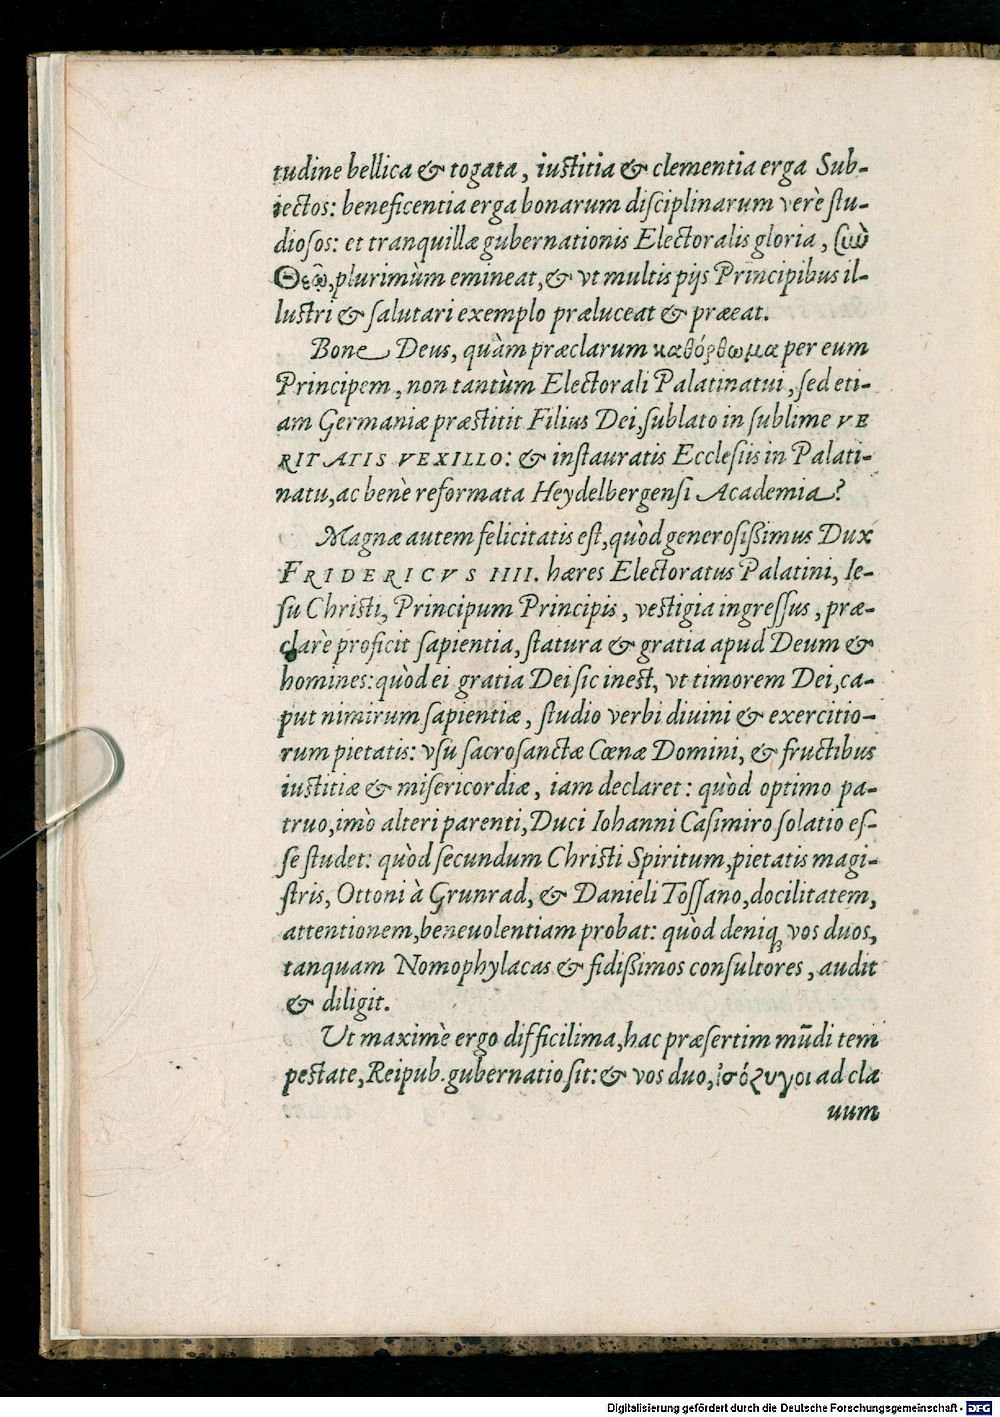 tudine bellica & togata, iustitia & clementia erga Sub-
iectos: beneficentia erga bonarum disciplinarum verè stu-
diosos: et tranquillæ gubernationis Electoralis gloria, σὺν
Θεῷ, plurimùm emineat, & vt multis pijs Principibus il-
lustri & salutari exemplo præluceat & præeat.
Bone Deus, quàm præclarum κατόρθωμα per eum
Principem, non tantùm Electorali Palatinatui, sed eti-
am Germaniæ præstitit Filius Dei, sublato in sublime VE
RITATIS VEXILLO: & instauratis Ecclesiis in Palati-
natu, ac benè reformata Heydelbergensi Academia?
Magnæ autem felicitatis est, quòd generosißimus Dux
FRIDERICVS IIII. hæres Electoratus Palatini, Ie-
su Christi, Principum Principis, vestigia ingressus, præ-
clarè proficit sapientia, statura & gratia apud Deum &
homines: quòd ei gratia Dei sic inest, vt timorem Dei, ca-
put nimirum sapientiæ, studio verbi diuini & exercitio-
rum pietatis: vsu sacrosanctæ Cœnæ Domini, & fructibus
iustitiæ & misericordiæ, iam declaret: quòd optimo pa-
truo, imò alteri parenti, Duci Iohanni Casimiro solatio es-
se studet: quòd secundum Christi Spiritum, pietatis magi-
stris, Ottoni à Grunrad, & Danieli Tossano, docilitatem,
attentionem, beneuolentiam probat: quòd deniqꝫ vos duos,
tanquam Nomophylacas & fidißimos consultores, audit
& diligit.
Ut maximè ergo difficilima, hac præsertim mūdi tem
pestate, Reipub. gubernatio sit: & vos duo, ἰσόζυγοι ad cla
uum
Digitalisierung gefördert durch die Deutsche Forschungsgemeinschaft - DFG